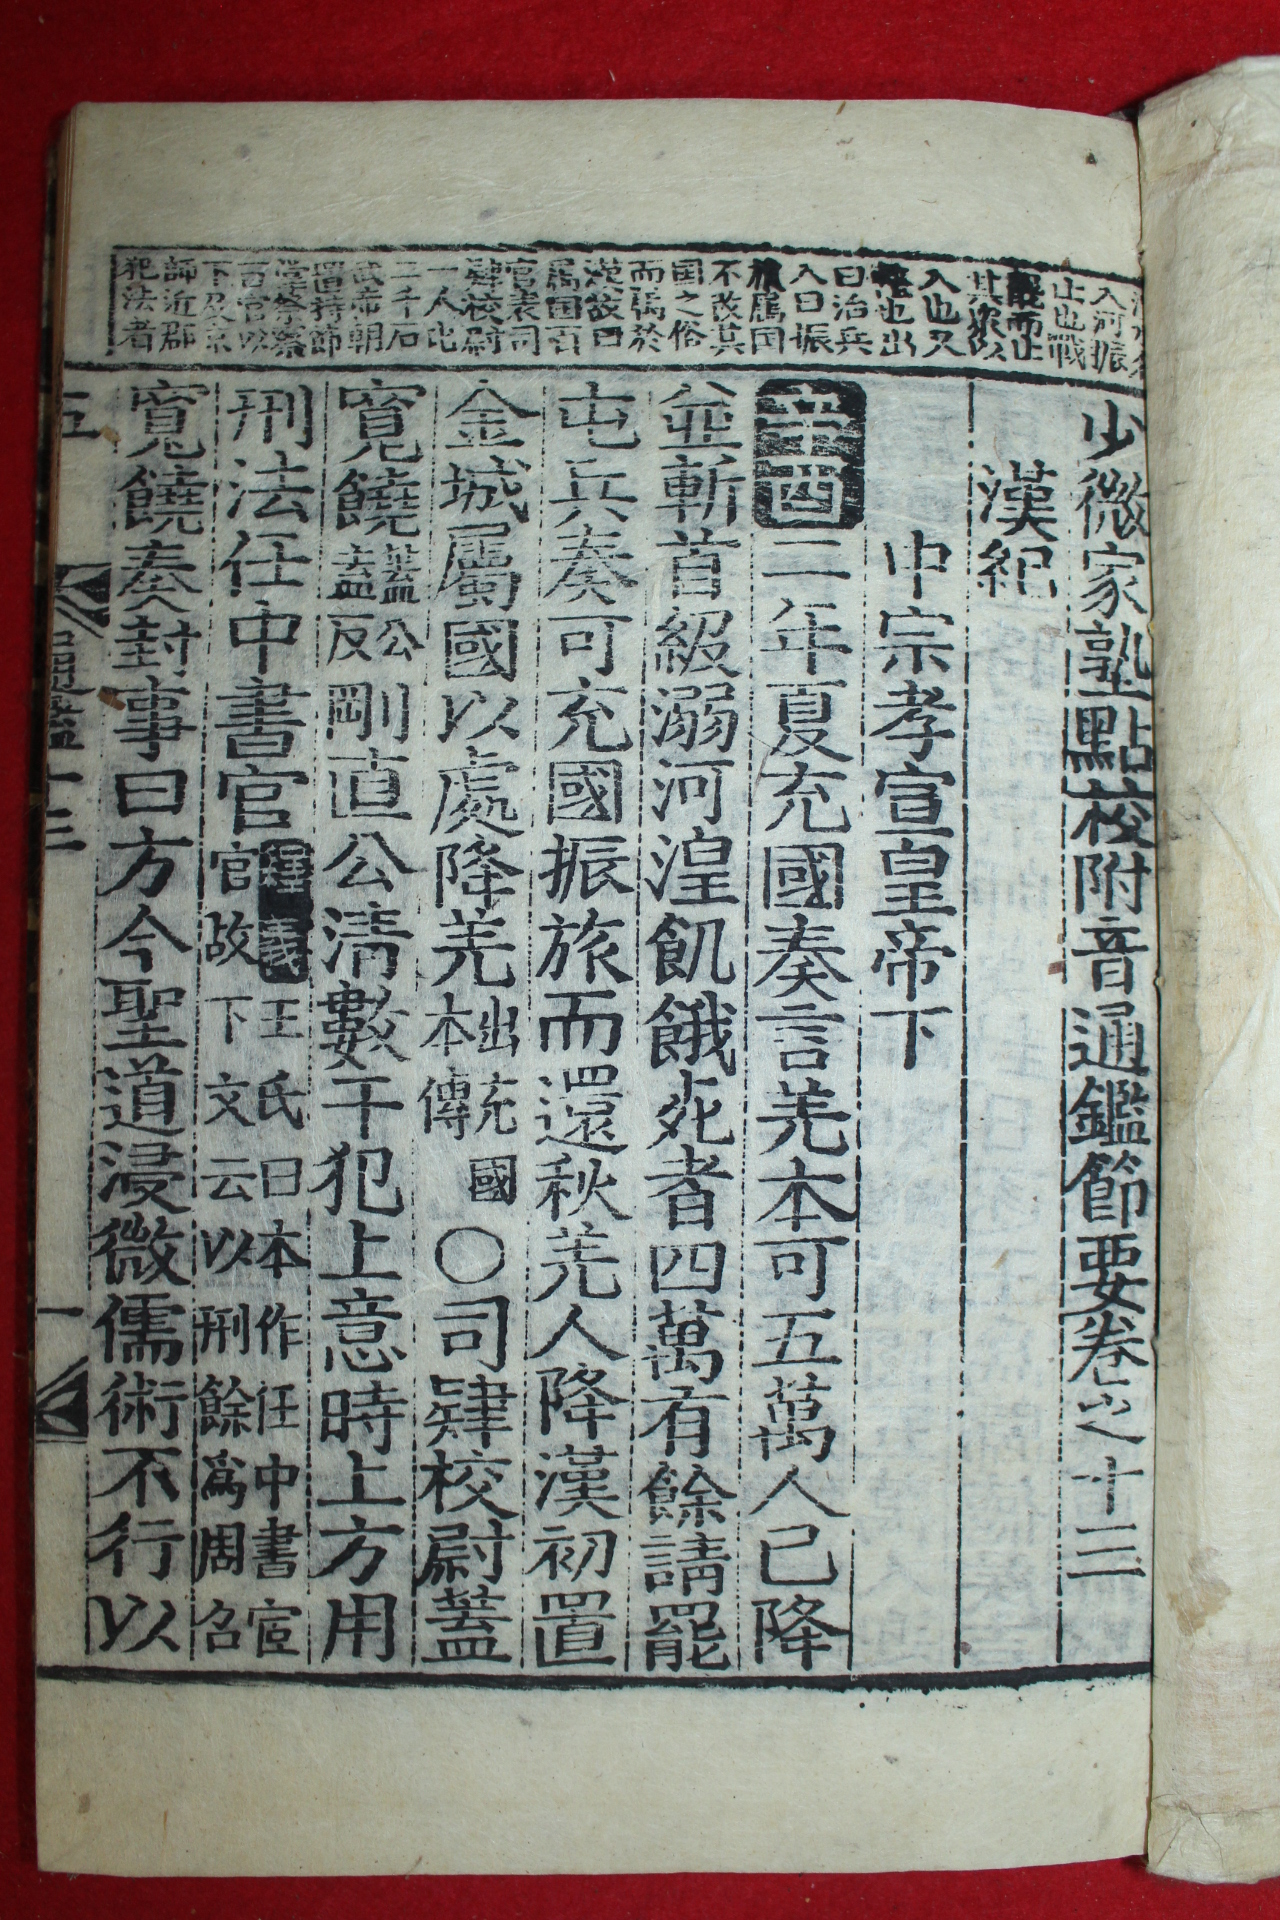 少微家塾點校附音通鑑節要卷之十三
漢紀
中宗孝宣皇帝下
辛酉二年夏充國奏言羌本可五萬人已降
並斬首級溺河湟飢餓死者四萬有餘請罷
屯兵奏可充國振旅而還秋羌人降漢初置
金城屬國以處降羌出充國本傳○司隷校尉蓋
寬饒蓋公盍反剛直公淸數干犯上意時上方用
刑法任中書官釋義王氏曰本作任中書宦官故下文云以刑餘爲周召
寬饒奏封事曰方今聖道浸微儒術不行以
入河振
止也戰
罷而止
其衆以
入也又
整也出
曰治兵
入曰振
旅屬国
不改其
国之俗
而屬於
漢故曰
屬国百
官表司
隷校尉
一人比
二千石
武帝朝
置持節
掌察察
百官以
下及京
師近郡
犯法者
五
通鑑十三
一